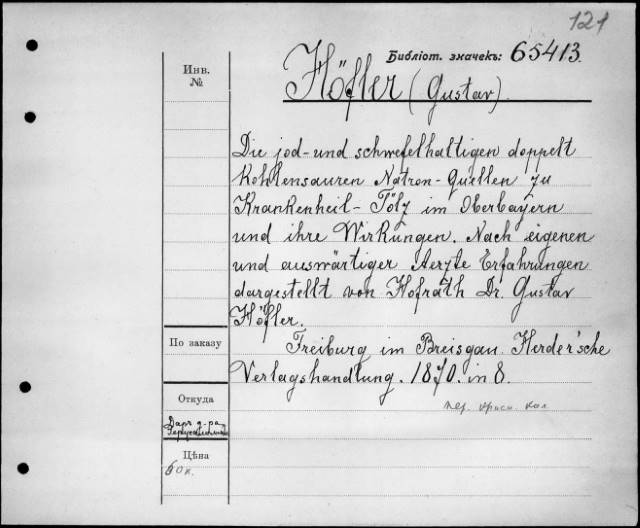 121
Библіот. значекъ: 65413.
Инв.
№
Höfler (Gustav).
Die jod- und schwefelhaltigen doppelt
kohlensauren Natron-Quellen zu
Krankenheil-Tölz im Oberbayern
und ihre Wirkungen. Nach eigenen
und auswärtiger Aerzte Erfahrungen
dargestellt von Hofrath Dr. Gustav
Höfler.
По заказу
Freiburg im Breisgau. Herder'sche
Verlagshandlung. 1870. in 8.
Откуда
пер. красн. кол
Даръ д-ра
Цѣна
60 к.